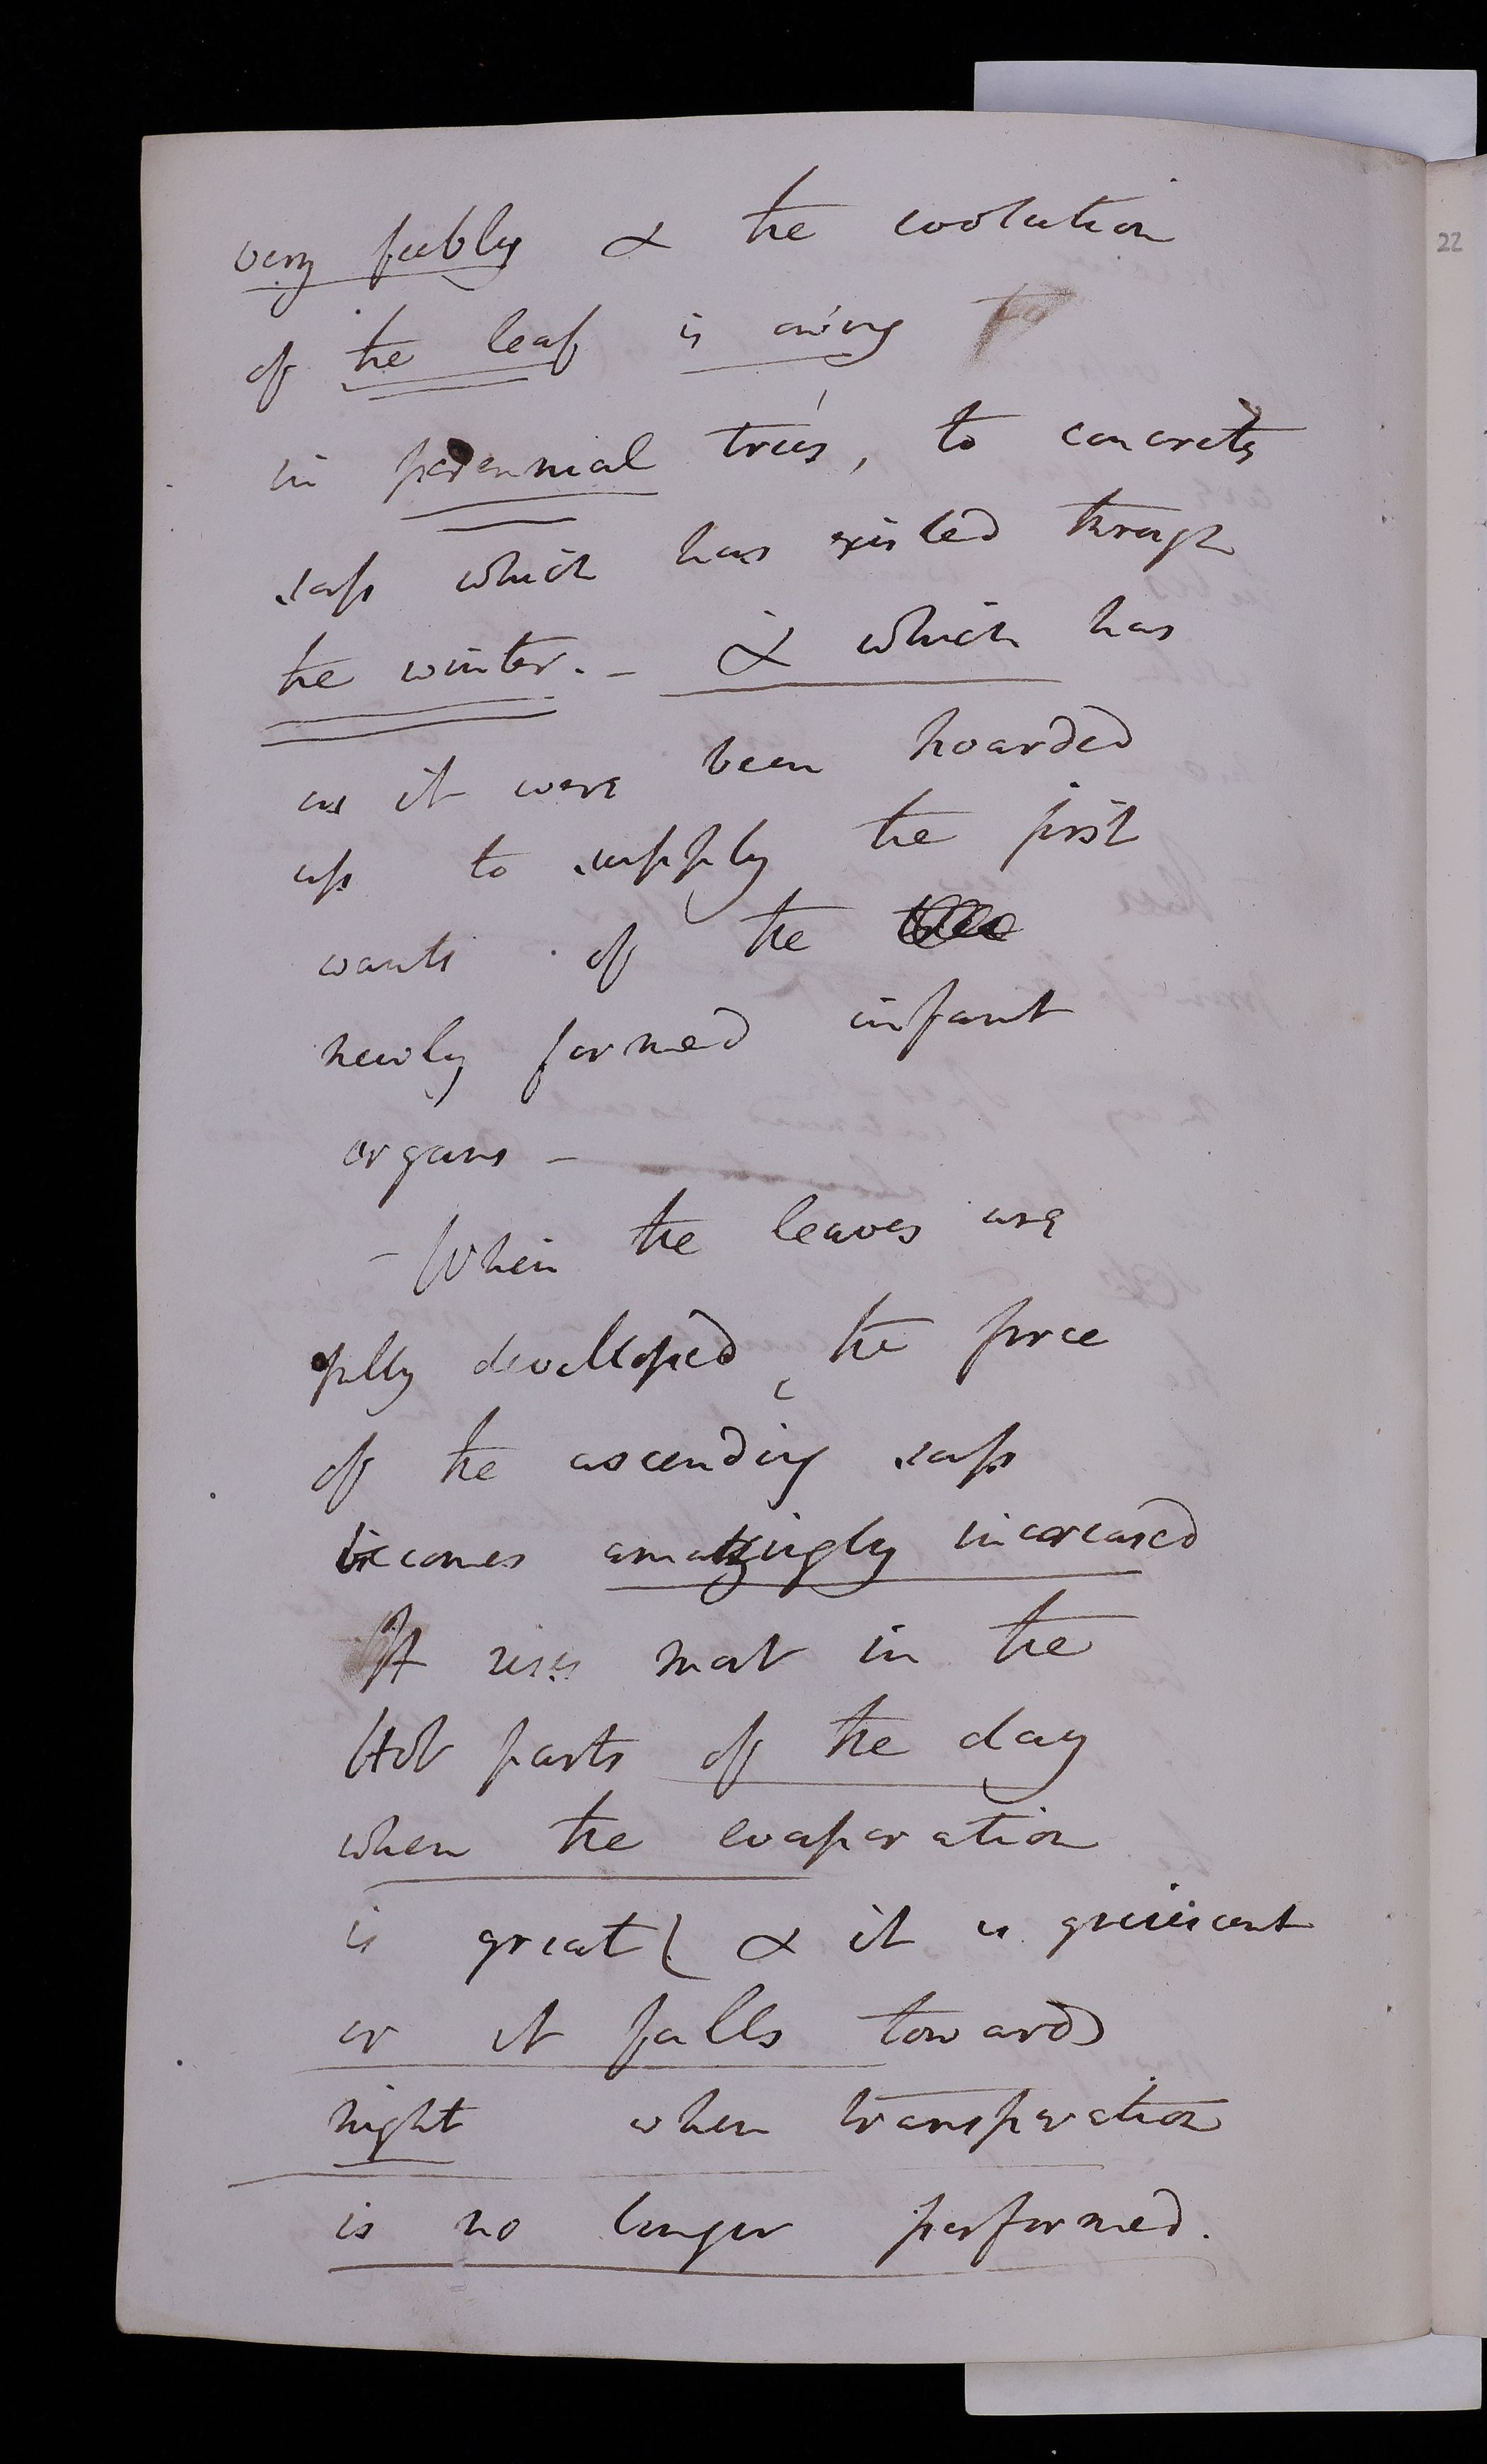 very feebly & the evolution
of the leaf is owing to
in perennial trees, to concrete
sap which has existed through
the winter. - & which has
as it were been hoarded
up to supply the first
wants of the
newly formed infant
organs -
- When the leaves are
fully developed, the force
of the ascending sap
becomes amazingly increased
It rises most in the
Hot parts of the day
when the evaporation
is great( & it is quiescent
or it falls towards
night when transpiration
is no longer performed.
22